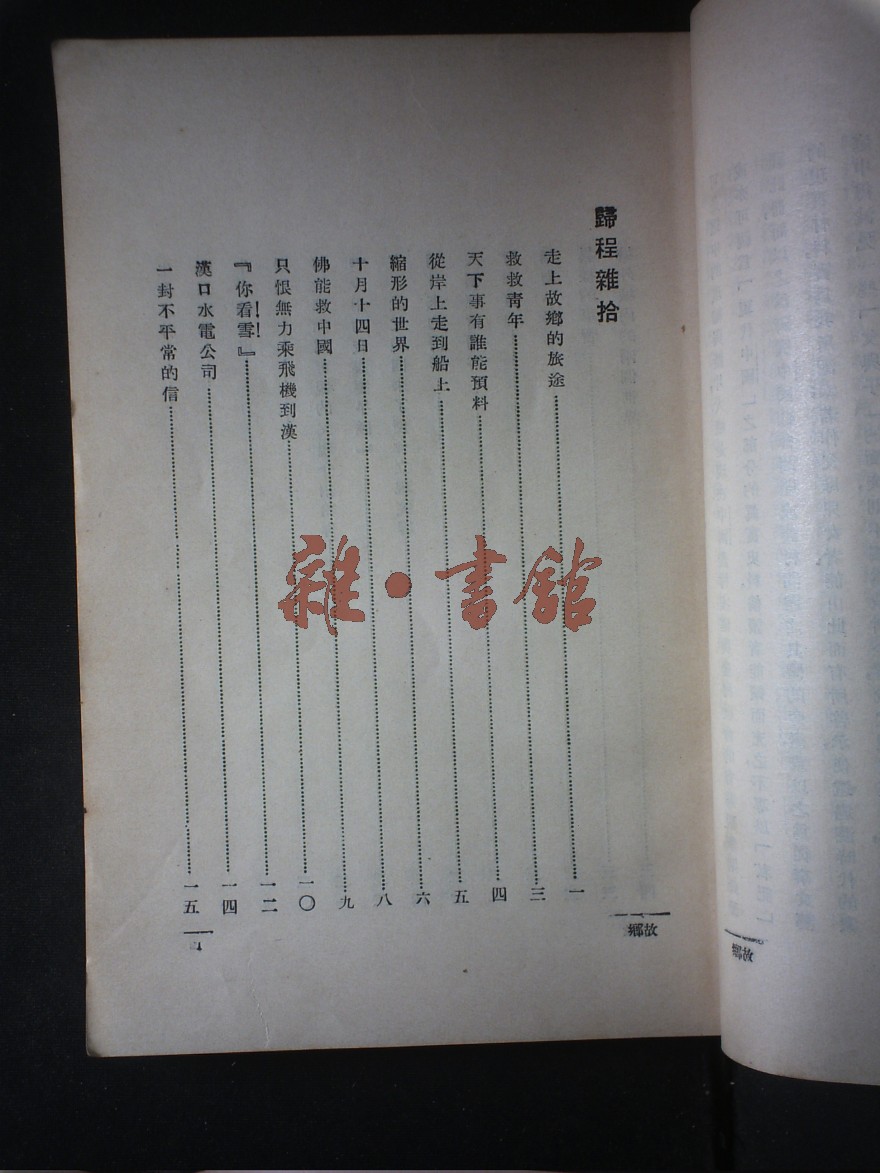 歸程雜拾
走上故鄉的旅途……一
救救青年……三
天下事有誰能預料……四
從岸上走到船上……五
縮形的世界……六
十月十四日……八
佛能救中國……九
只恨無力乘飛機到漢……一〇
『你看雪！！』……一二
漢口水電公司……一四
一封不平常的信……一五
故鄉
雜·書館